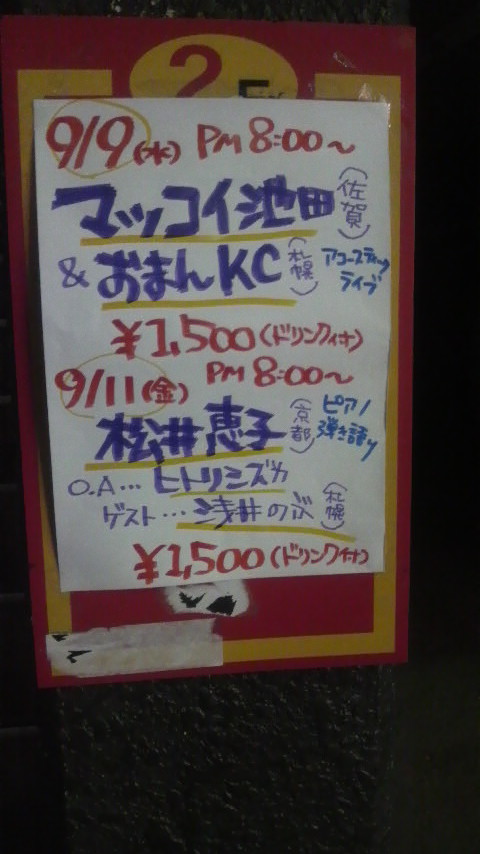 2F
9/9(水) PM 8:00〜
マッコイ池田(佐賀)
& おまんKC(札幌) アコースティックライブ
¥1,500(ドリンク付)
9/11(金) PM 8:00〜
松井恵子(京都) ピアノ弾き語り
O.A... ヒトリシズカ
ゲスト...浅井のぶ(札幌)
¥1,500(ドリンク付)